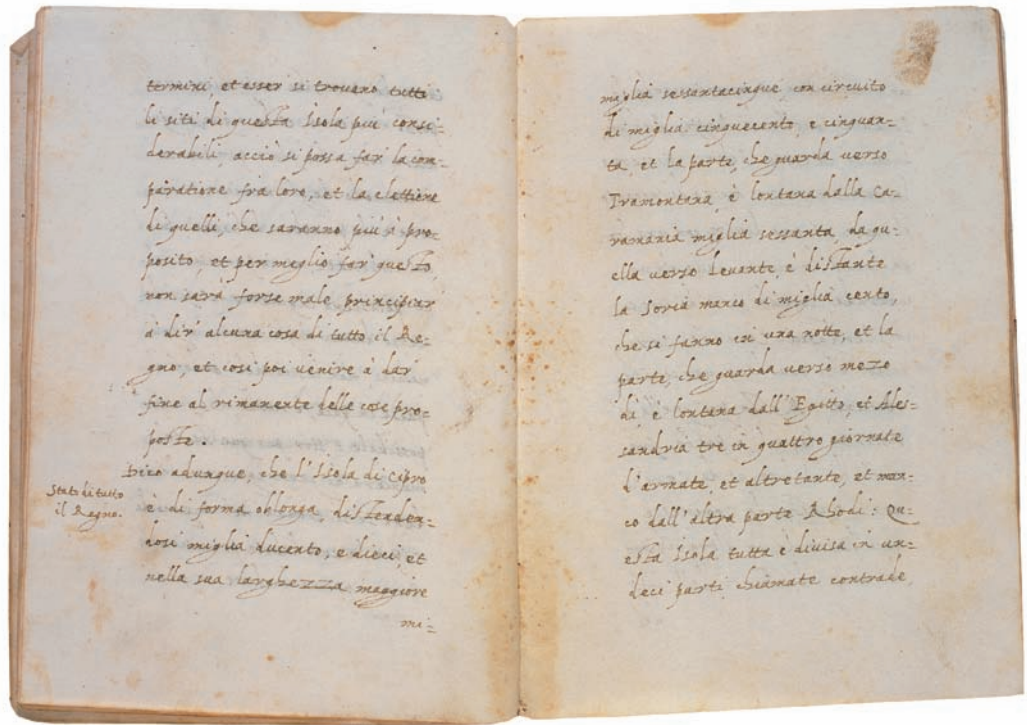 termini, et esser si trovano tutti
li siti di questa Isola più consi=
derabili, acciò si possa far' la com=
paratione fra loro, et la elettione
di quelli, che saranno più à pro=
posito, et per meglio far' questo,
non sarà forse male, principiar
à dir' alcuna cosa di tutto il Re=
gno, et così poi uenire à dar'
fine al rimanente delle cose pro=
poste.
Dico adunque, che l'Isola di Cipro
Stato di tutto
il Regno.
è di forma oblonga, distenden=
dosi miglia ducento, e dieci, et
nella sua larghezza maggiore
mi=
miglia sessantacinque con circuito
di miglia cinquecento, e cinquan=
ta, et la parte, che guarda verso
Tramontana, è lontana dalla Ca=
ramania miglia sessanta, da qu=
ella uerso Leuante, è distante
la Soria manco di miglia cento,
che si fanno in una notte, et la
parte, che guarda uerso mezo
dì, è lontana dall'Egitto, et Ales=
sandria tre in quattro giornate
d'armate, et altretante, et man=
co dall'altra parte Rhodi: Qu=
esta Isola tutta è divisa in un=
deci parti chiamate contrade,